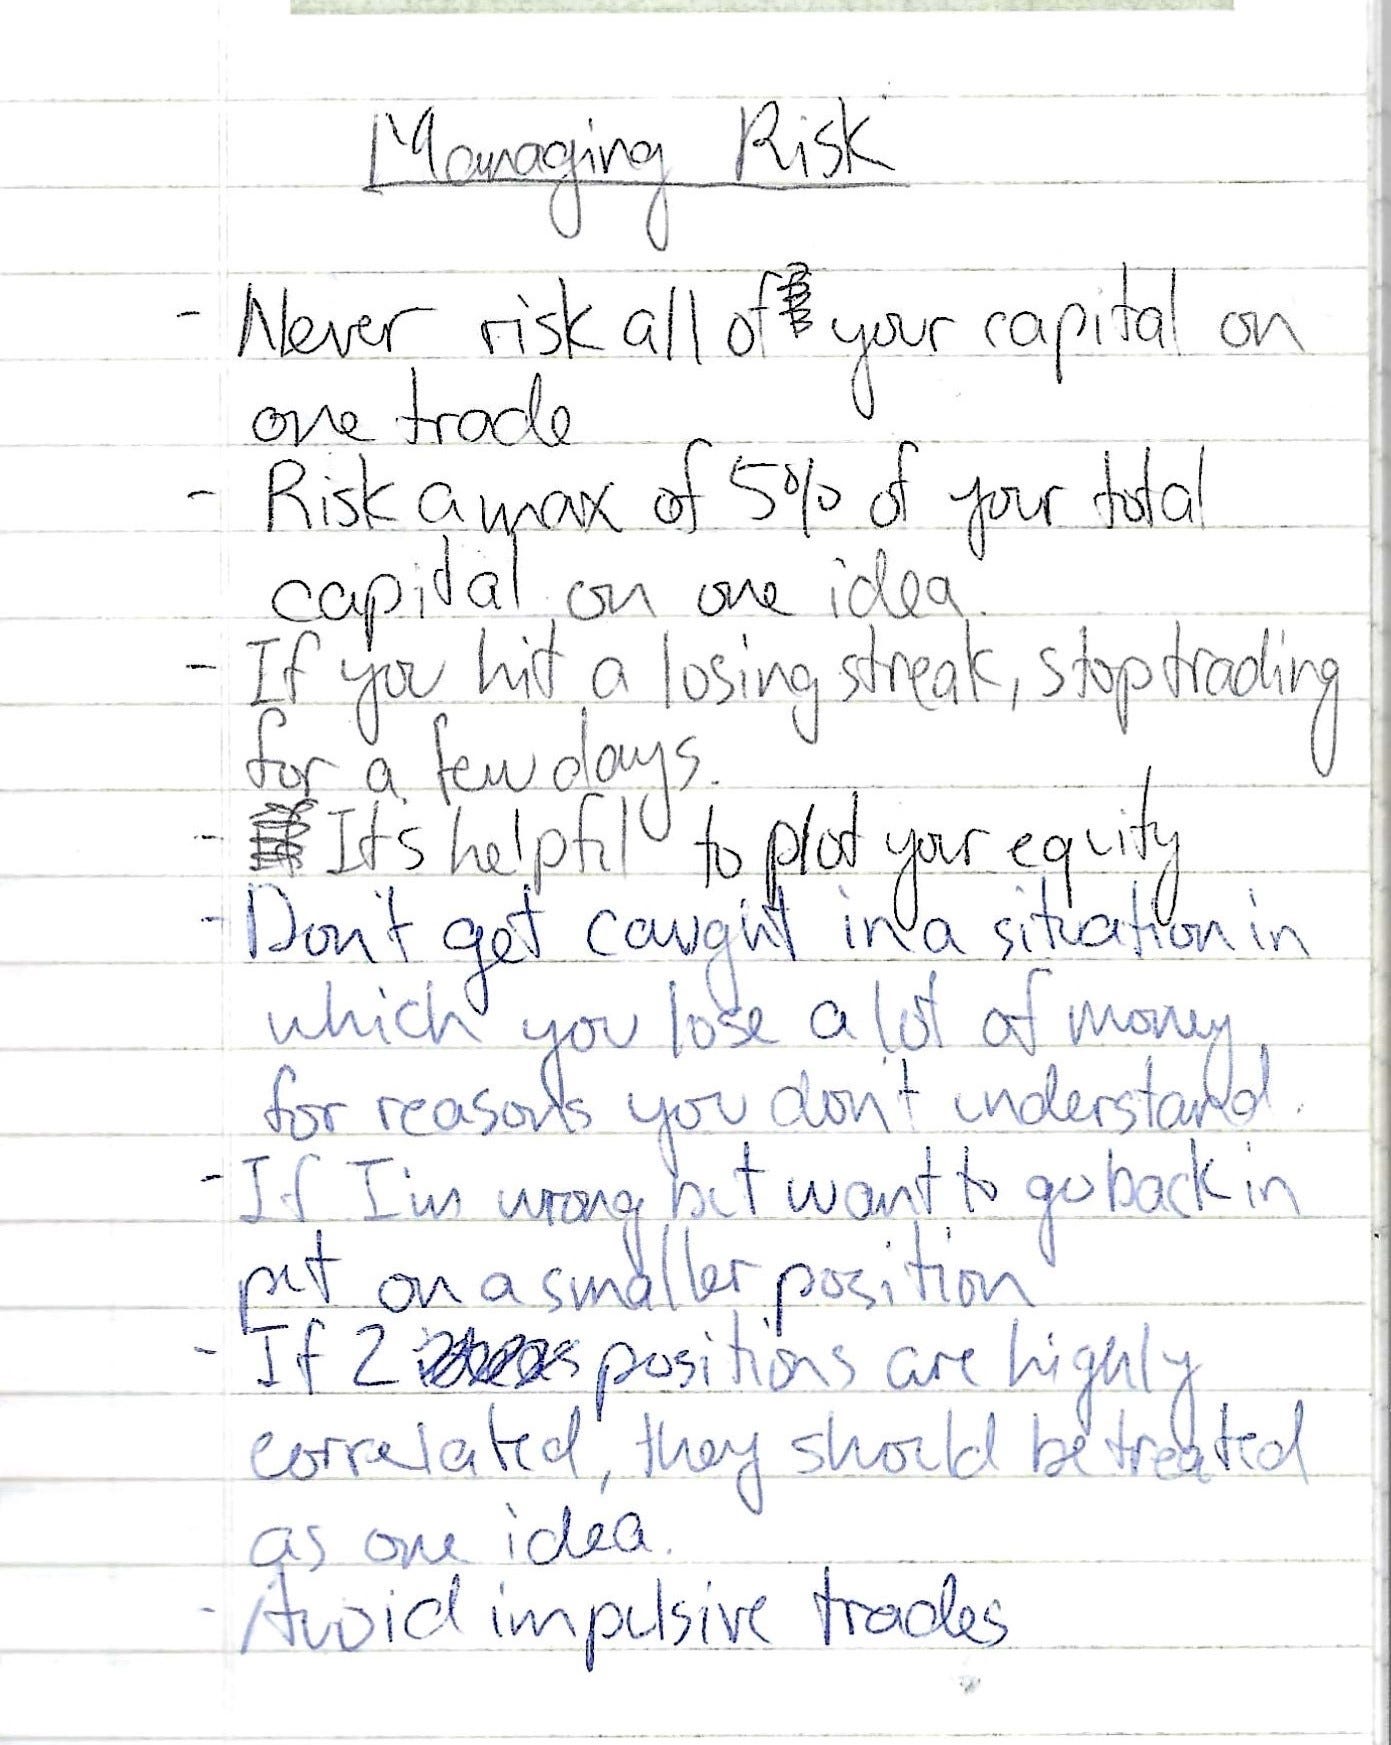 Managing Risk
- Never risk all of your capital on
one trade
- Risk a max of 5% of your total
capital on one idea.
- If you hit a losing streak, stop trading
for a few days.
- It's helpful to plot your equity
- Don't get caught in a situation in
which you lose a lot of money
for reasons you don't understand.
- If I'm wrong but want to go back in
put on a smaller position
- If 2 positions are highly
correlated, they should be treated
as one idea.
- Avoid impulsive trades